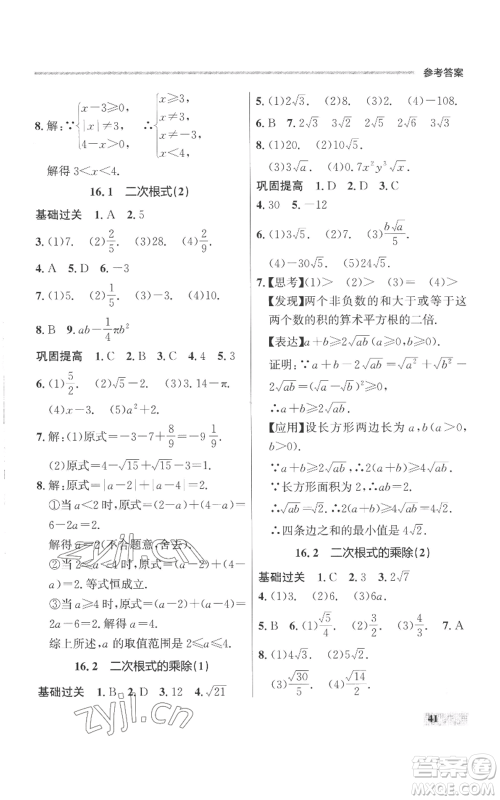 参考答案
8. 解：∵{x−3≥0, |x|≠3, 4−x>0, ∴{x≥3, x≠3, x≠−3, x<4.
解得 3<x<4.
16.1 二次根式(2)
基础过关 1. A 2. 5
3. (1)7. (2)2/5. (3)28. (4)2/9.
4. A 5. D 6. −3
7. (1)5. (2)2/5. (3)−10. (4)π.
8. B 9. ab−1/4πb²
巩固提高 1. C 2. B 3. C 4. 4 5. 3
6. (1)5/2. (2)√5−2. (3)√2−1.
(4)x−3.
7. 解：(1)原式=−3−6+8/9=−8 1/9.
(2)原式=4−√15+√15−3=1.
8. 解：原式=|2−a|+|a−4|=2.
①当 a<2 时，原式=(2−a)+(4−a)=
6−2a=2.
解得 a=2(不合题意，舍去).
②当 2≤a<4 时，原式=(a−2)+(4−a)
=2. 等式恒成立.
③当 a≥4 时，原式=(a−2)+(a−4)=
2a−6=2. 解得 a=4.
综上所述，a 的取值范围是 2≤a≤4.
16.2 二次根式的乘除(1)
基础过关 1. B 2. D 3. 12 4. √21
5. (1)2√3. (2)8. (3)2√a. (4)−108.
6. B 7. (1)2√30. (2)10√5.
8. (1)3√3. (2)10√5.
(3)3√a. (4)10x²y³√y.
巩固提高 1. D 2. D 3. C
4. 30 5. −12
6. (1)3√5. (2)b√a/5.
(3)−30√5. (4)−10√15.
7. 【思考】(1)> (2)> (3)> (4)>
【发现】两个非负数的和大于或等于这
两个数的积的算术平方根的二倍.
【表达】a+b≥2√ab(a≥0,b≥0).
证明：∵a+b−2√ab=(√a−√b)²≥0,
∴a+b≥2√ab.
【应用】设长方形两边长为 a,b(a>0,
b>0). ∵a+b≥2√ab,
∴2(a+b)≥4√ab.
∵长方形面积为 2, ∴ab=2.
∴4√ab=4√2.
∴四条边之和的最小值是 4√2.
16.2 二次根式的乘除(2)
基础过关 1. C 2. 3 3. 2√7
4. (1)3. (2)√3. (3)2√a. (4)√5.
5. D 6. (1)3/5. (2)9/8. 7. A
8. (1)4√3/3. (2)√10/5. (3)2√3/3.
(4)√30/5. (5)√14/2. (6)2√a.
41
zyjl.cn
zyjl.cn